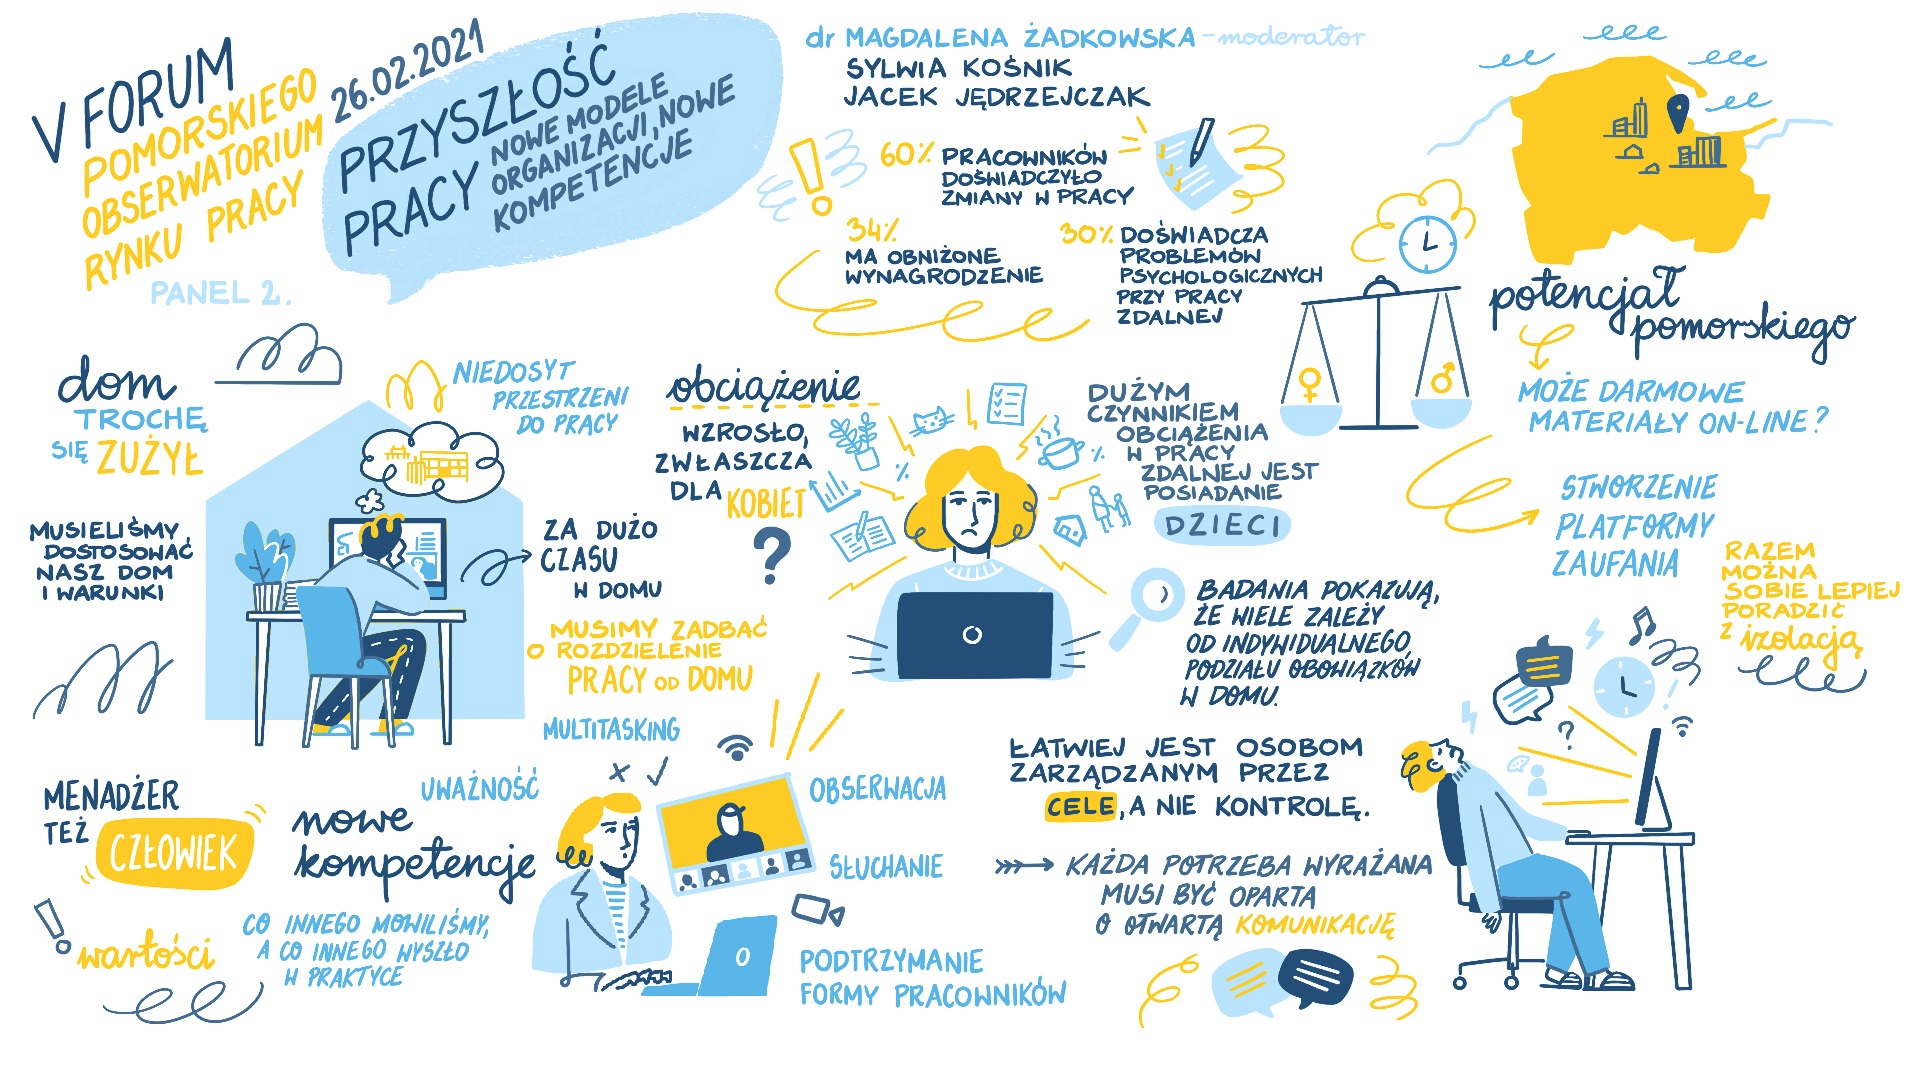 V FORUM
POMORSKIEGO
OBSERWATORIUM
RYNKU PRACY
26.02.2021
PANEL 2.
PRZYSZŁOŚĆ
PRACY
NOWE MODELE
ORGANIZACJI, NOWE
KOMPETENCJE
dr MAGDALENA ŻADKOWSKA - moderator
SYLWIA KOŚNIK
JACEK JĘDRZEJCZAK
60% PRACOWNIKÓW
DOŚWIADCZYŁO
ZMIANY W PRACY
34%
MA OBNIŻONE
WYNAGRODZENIE
30% DOŚWIADCZA
PROBLEMÓW
PSYCHOLOGICZNYCH
PRZY PRACY
ZDALNEJ
potencjał
pomorskiego
MOŻE DARMOWE
MATERIAŁY ON-LINE?
STWORZENIE
PLATFORMY
ZAUFANIA
RAZEM
MOŻNA
SOBIE LEPIEJ
PORADZIĆ
Z izolacją
dom
TROCHĘ
SIĘ ZUŻYŁ
NIEDOSYT
PRZESTRZENI
DO PRACY
MUSIELIŚMY
DOSTOSOWAĆ
NASZ DOM
I WARUNKI
ZA DUŻO
CZASU
W DOMU
MUSIMY ZADBAĆ
O ROZDZIELENIE
PRACY OD DOMU
obciążenie
WZROSŁO,
ZWŁASZCZA
DLA KOBIET
?
%
%
DUŻYM
CZYNNIKIEM
OBCIĄŻENIA
W PRACY
ZDALNEJ JEST
POSIADANIE
DZIECI
BADANIA POKAZUJĄ,
ŻE WIELE ZALEŻY
OD INDYWIDUALNEGO,
PODZIAŁU OBOWIĄZKÓW
W DOMU.
MENADŻER
TEŻ CZŁOWIEK
wartości
CO INNEGO MÓWILIŚMY,
A CO INNEGO WYSZŁO
W PRAKTYCE
nowe
kompetencje
UWAŻNOŚĆ
MULTITASKING
OBSERWACJA
SŁUCHANIE
PODTRZYMANIE
FORMY PRACOWNIKÓW
ŁATWIEJ JEST OSOBOM
ZARZĄDZANYM PRZEZ
CELE, A NIE KONTROLĘ.
KAŻDA POTRZEBA WYRAŻANA
MUSI BYĆ OPARTA
O OTWARTĄ KOMUNIKACJĘ
?